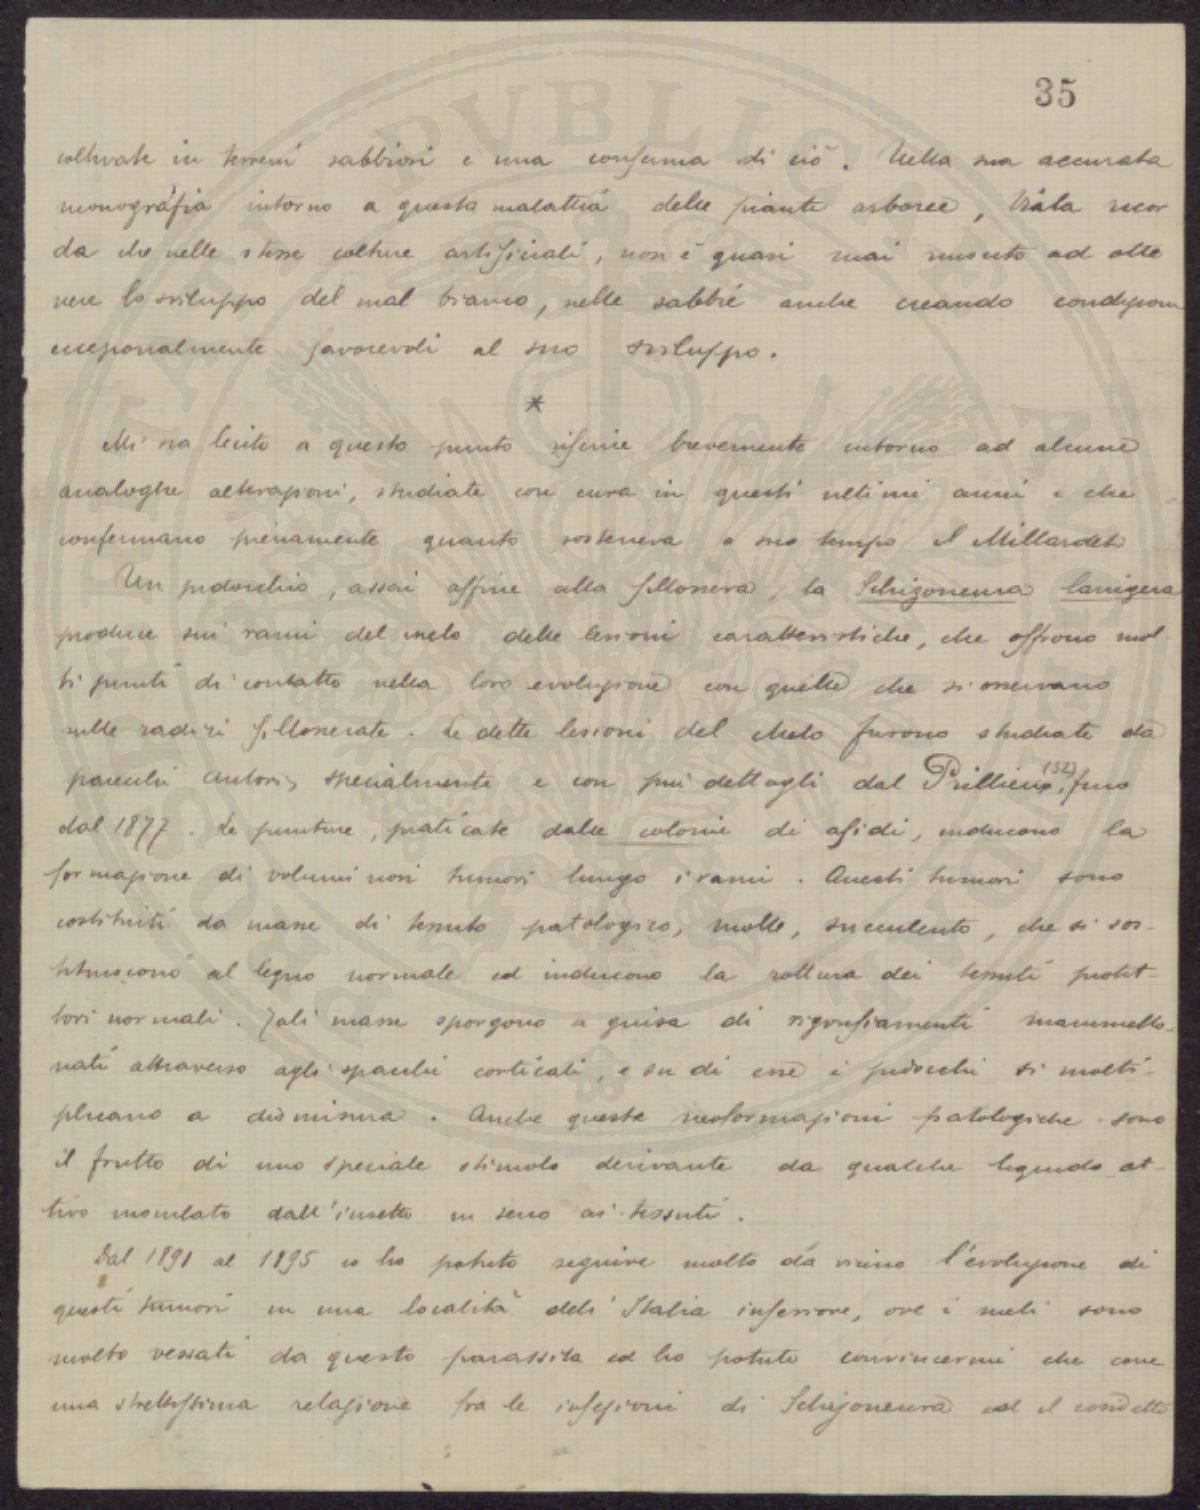 35
coltivate in terreni sabbiosi è una conferma di ciò. Nella sua accurata
monografia intorno a questa malattia delle piante arboree, Viala ricor
da che nelle stesse colture artificiali, non è quasi mai riuscito ad otte
nere lo sviluppo del mal bianco, nelle sabbie anche creando condizioni
eccezionalmente favorevoli al suo sviluppo.
*
Mi sia lecito a questo punto riferire brevemente intorno ad alcune
analoghe alterazioni, studiate con cura in questi ultimi anni e che
confermano pienamente quanto sosteneva a suo tempo il Millardet
Un pidocchio, assai affine alla fillossera, la Schizoneura lanigera
produce sui rami del melo delle lesioni caratteristiche, che offrono mol-
ti punti di contatto nella loro evoluzione con quelle che si osservano
sulle radici fillosserate. Le dette lesioni del Melo furono studiate da
parecchi autori, specialmente e con più dettagli dal Prillieux (52), fino
dal 1877. Le punture, praticate dalle colonie di afidi, inducono la
formazione di voluminosi tumori lungo i rami. Questi tumori sono
costituiti da masse di tessuto patologico, molle, succulento, che si sos-
tituiscono al legno normale ed inducono la rottura dei tessuti protet-
tori normali. Tali masse sporgono a guisa di rigonfiamenti mammello-
nati attraverso agli spacchi corticali, e su di esse i pidocchi si molti-
plicano a dismisura. Anche queste neoformazioni patologiche sono
il frutto di uno speciale stimolo derivante da qualche liquido at-
tivo inoculato dall'insetto in seno ai tessuti.
Dal 1891 al 1895 io ho potuto seguire molto da vicino l'evoluzione di
questi tumori in una località dell'Italia inferiore, ove i meli sono
molto vessati da questo parassita ed ho potuto convincermi che corre
una strettissima relazione fra le infezioni di Schizoneura ed il cosidetto